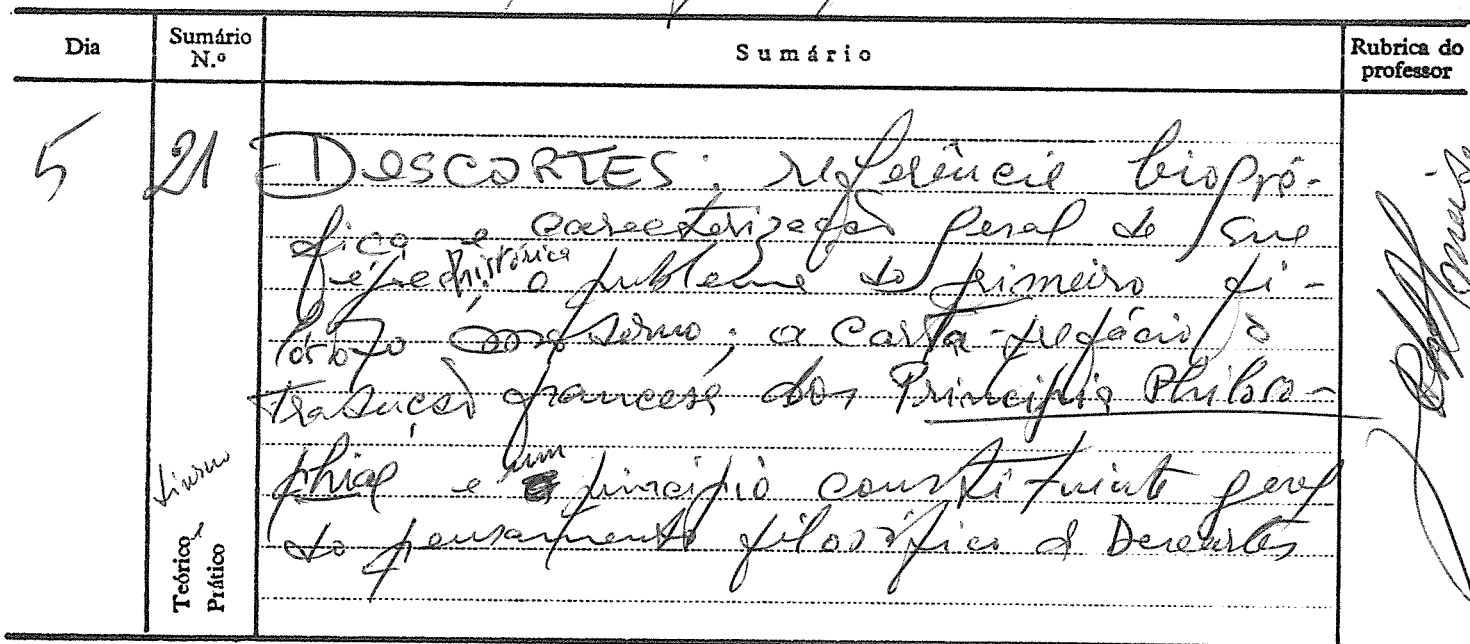 Dia Sumário N.º Sumário Rubrica do professor
5 21 DESCARTES: referência biográ-
fica e caracterização geral da sua
época histórica; o problema do primeiro fi-
lósofo moderno; a Carta-prefácio à
tradução francesa dos Principia Philoso-
phiae e um princípio constituinte geral
do pensamento filosófico de Descartes
Teórico
Prático